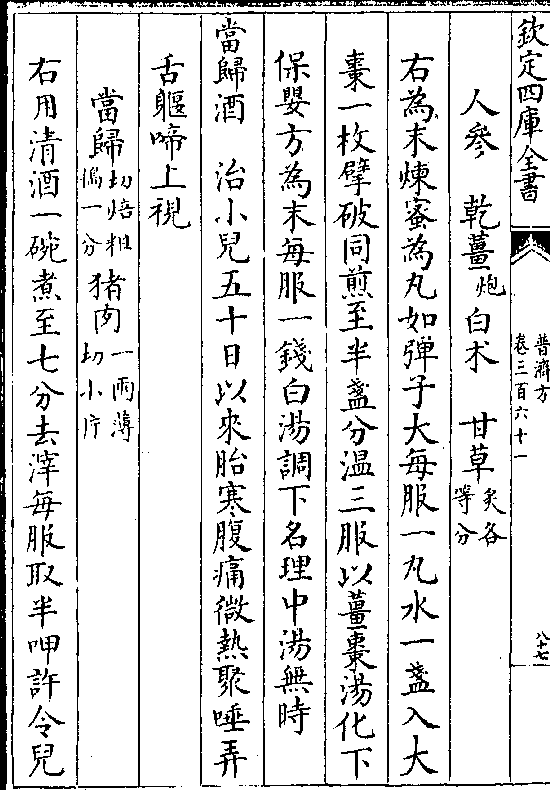 欽定四庫全書
普濟方
卷三百六十一
八十七
人參　乾薑炮　白术　甘草炙各等分
右為末煉蜜為丸如彈子大每服一丸水一盞入大
棗一枚擘破同煎至半盞分溫三服以薑棗湯化下
保嬰方為末每服一錢白湯調下名理中湯無時
當歸酒　治小兒五十日以來胎寒腹痛微熱聚唾弄
舌軀啼上視
當歸切焙粗搗一分　猪肉一兩薄切小片
右用清酒一碗煮至七分去滓每服取半呷許令兒